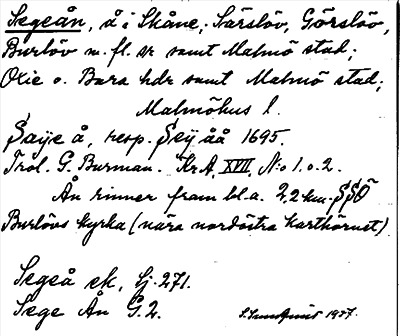 Segeån, å i Skåne, Särslöv, Görslöv,
Burlöv m. fl. sr samt Malmö stad;
Oxie o. Bara hdr samt Malmö stad;
Malmöhus l.
Saije å, resp. Seij åå 1695.
Trol. G. Burman. Kr A, XVII, N:o 1. o. 2.
Ån rinner fram bl.a. 2,2 km. SSÖ
Burlövs kyrka (nära nordöstra karthörnet).
Segeå ek, Lj. 271.
Sege Ån G. 2.
1937.